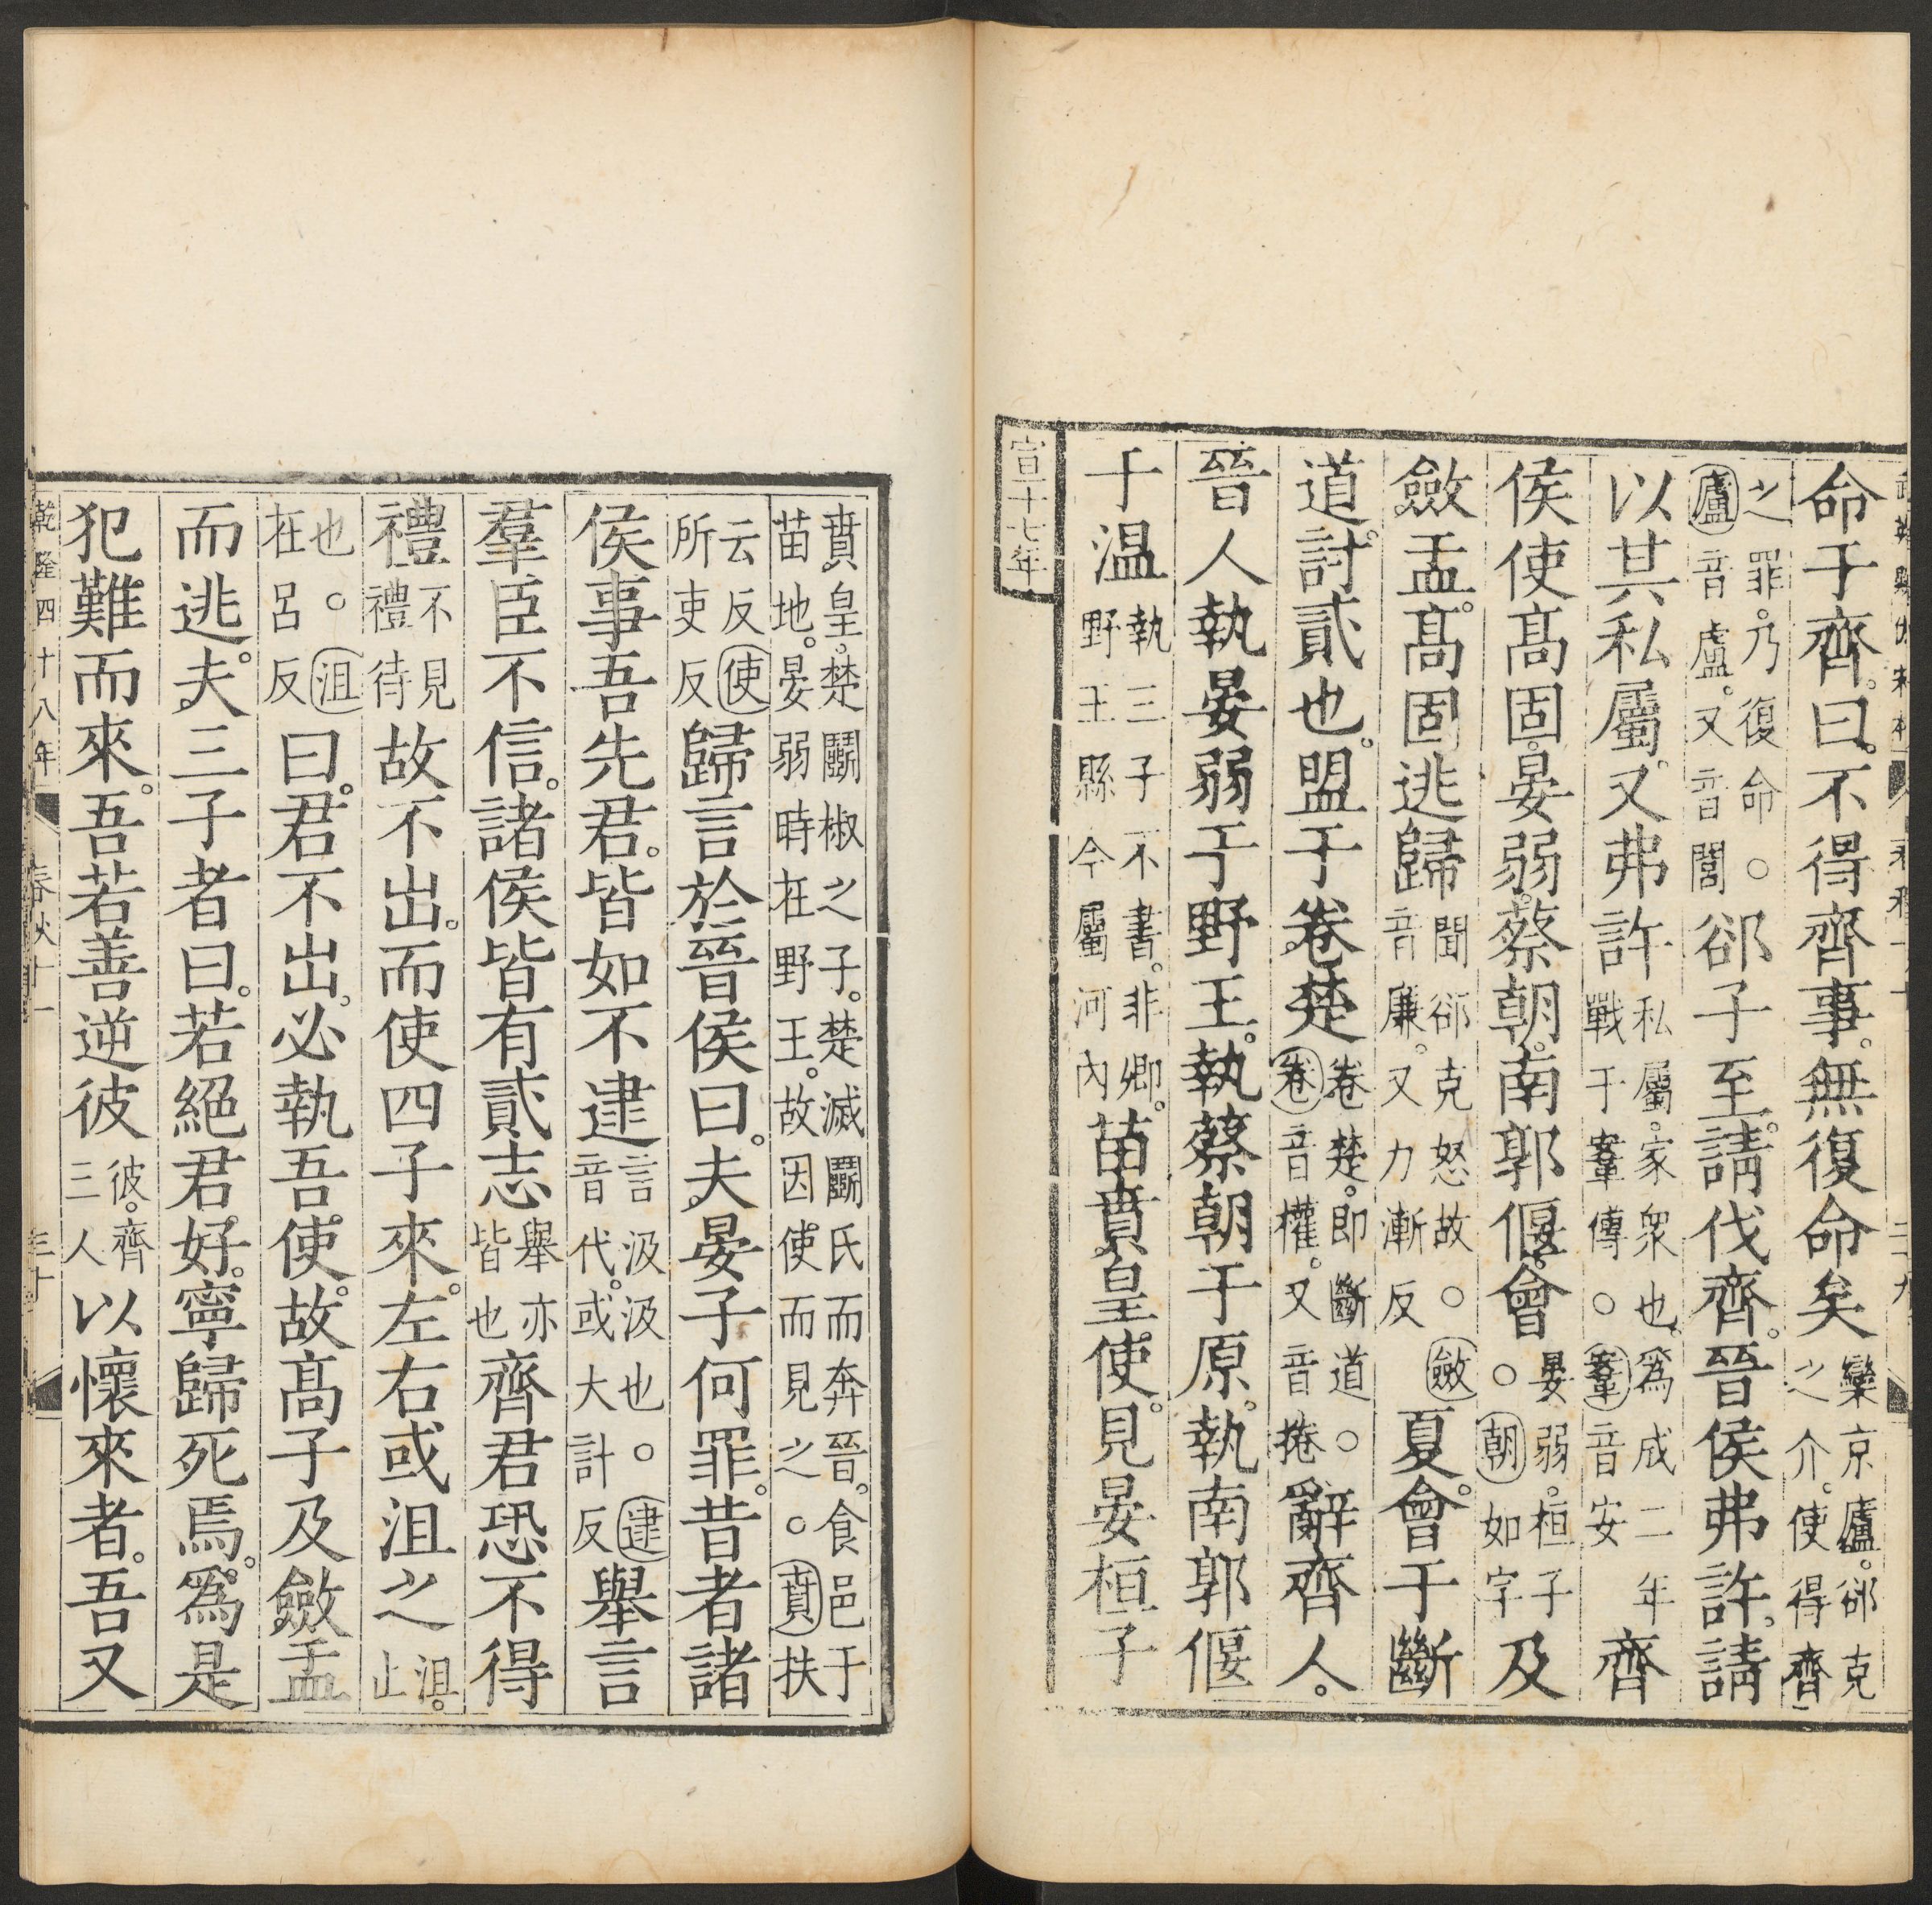 命于齊。曰。不得齊事。無復命矣欒京廬。郤克之介。使得齊
之罪。乃復命。○廬音盧。又音閭郤子至。請伐齊。晉侯弗許。請
以其私屬。又弗許私屬。家衆也。爲成二年戰于鞌傳。○鞌音安齊
侯使髙固。晏弱。蔡朝。南郭偃。會晏弱。桓子○朝如字及
斂盂。髙固逃歸聞郤克怒故。○斂音廉。又力漸反夏。會于斷
道。討貳也。盟于卷楚卷楚。即斷道。○卷音權。又音捲辭齊人。
晉人執晏弱于野王。執蔡朝于原。執南郭偃
于温執三子不書。非卿。野王縣今屬河內苗賁皇使。見晏桓子
宣十七年
賁皇。楚鬭椒之子。楚滅鬭氏而奔晉。食邑于苗地。晏弱時在野王。故因使而見之。○賁扶
云反使所吏反歸言於晉侯曰。夫晏子何罪。昔者諸
侯事吾先君。皆如不逮言汲汲也。○逮音代。或大計反舉言
羣臣不信。諸侯皆有貳志舉亦皆也齊君恐不得
禮不見禮待故不出。而使四子來。左右或沮之沮。止
也。○沮在呂反曰。君不出。必執吾使。故髙子及斂盂
而逃。夫三子者曰。若絕君好。寧歸死焉。爲是
犯難而來。吾若善逆彼彼。齊三人以懷來者。吾又
乾隆四十八年 春秋十一 三十